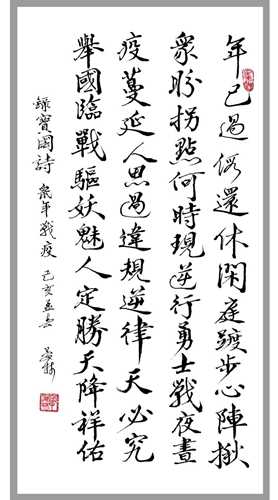 年已過俗還休閑庭踱步心陣揪
衆盼拐點何時現逆行勇士戰夜晝
疫蔓延人思過違規逆律天必究
舉國臨戰驅妖魅人定勝天降祥佑
錄寶國詩 衆年戰疫 己亥孟春